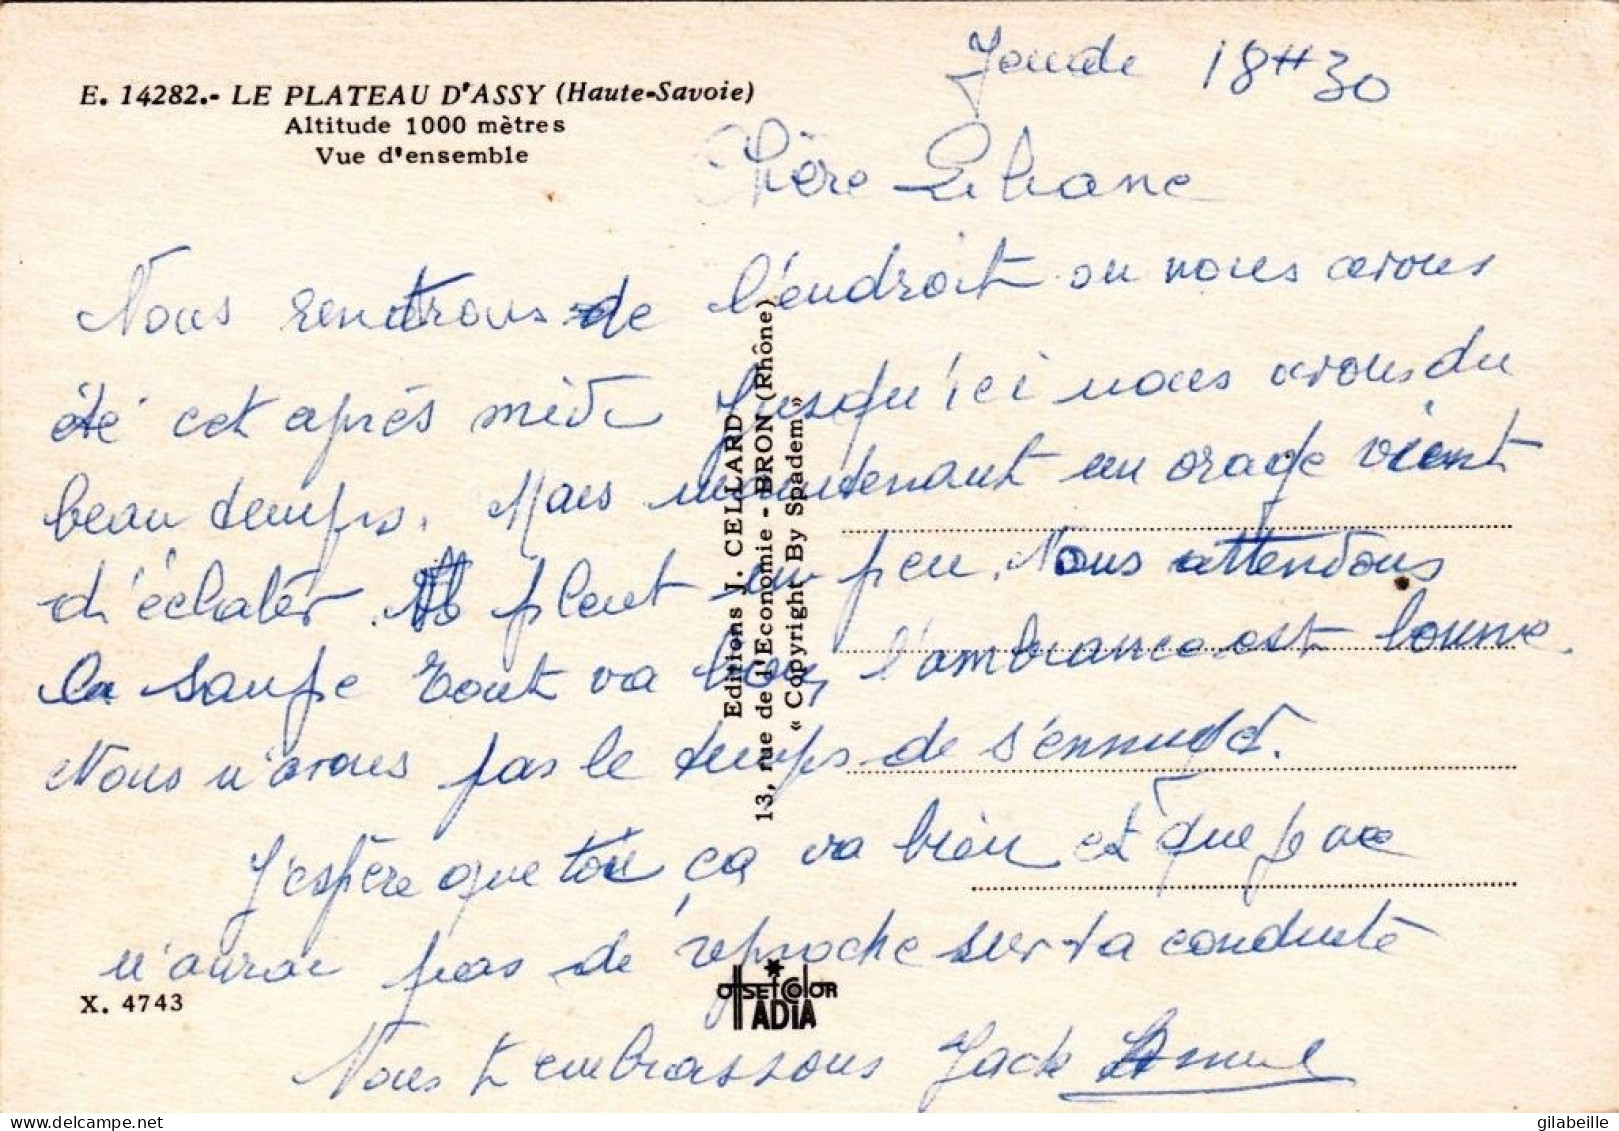 E. 14282.- LE PLATEAU D'ASSY (Haute-Savoie)
Altitude 1000 mètres
Vue d'ensemble
18H30
Chère Liliane
Nous rentrons de l'endroit ou nous avons
été cet après midi Jusqu'ici nous avons du
beau temps. Mais maintenant un orage vient
d'éclater. Il pleut un peu. Nous attendons
la soupe Tout va bon, l'ambiance est bonne.
Nous n'avons pas le temps de s'ennuyer.
J'espère que toi ça va bien et que je
n'aurai pas de reproche sur ta conduite
Nous t'embrassons Jack
Editions J. CELLARD
13, rue de l'Economie - BRON (Rhône)
« Copyright By Spadem »
X. 4743
OffSETCOlOR
ADIA
gilabeille